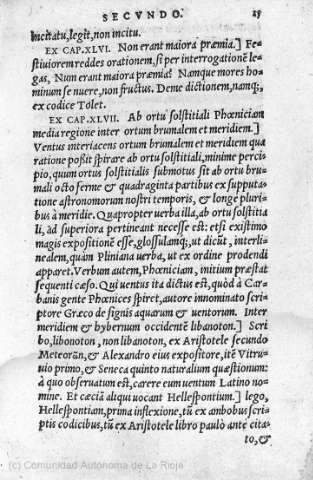 SECVNDO. 25
incitatu, legit, non incitu.
EX CAP. XLVI. Non erant maiora præmia.] Fe-
stiuiorem reddes orationem, si per interrogationē le-
gas, Num erant maiora præmia? Namque mores ho-
minum senuere, non fructus. Deme dictionem, namq;,
ex codice Tolet.
EX CAP. XLVII. Ab ortu solstitiali Phœniciam
media regione inter ortum brumalem et meridiem.]
Ventus interiacens ortum brumalem et meridiem qua
ratione poßit spirare ab ortu solstitiali, minime perci-
pio, quum ortus solstitialis submotus sit ab ortu bru-
mali octo ferme & quadraginta partibus ex supputa-
tione astronomorum nostri temporis, & longe pluri-
bus à meridie. Quapropter uerba illa, ab ortu solstitia
li, ad superiora pertinent necesse est: etsi existimo
magis expositionē esse, glossulamq́;, ut dicūt, interli-
nealem, quàm Pliniana uerba, ut ex ordine prodendi
apparet. Verbum autem, Phœniciam, initium præstat
sequenti cæso. Qui uentus ita dictus est, quòd à Car-
banis gente Phœnices spiret, autore innominato scri-
ptore Græco de signis aquarum & uentorum. Inter
meridiem & hybernum occidentē libanoton.] Scri
bo, libonoton, non libanoton, ex Aristotele secundo
Meteorωn, & Alexandro eius expositore, itē Vitru-
uio primo, & Seneca quinto naturalium quæstionum:
à quo obseruatum est, carere eum uentum Latino no-
mine. Et cæciā aliqui uocant Hellespontium.] lego,
Hellespontian, prima inflexione, tū ex ambobus scri-
ptis codicibus, tū ex Aristotele libro paulò ante cita-
to, &
(c) Comunidad Autónoma de La Rioja